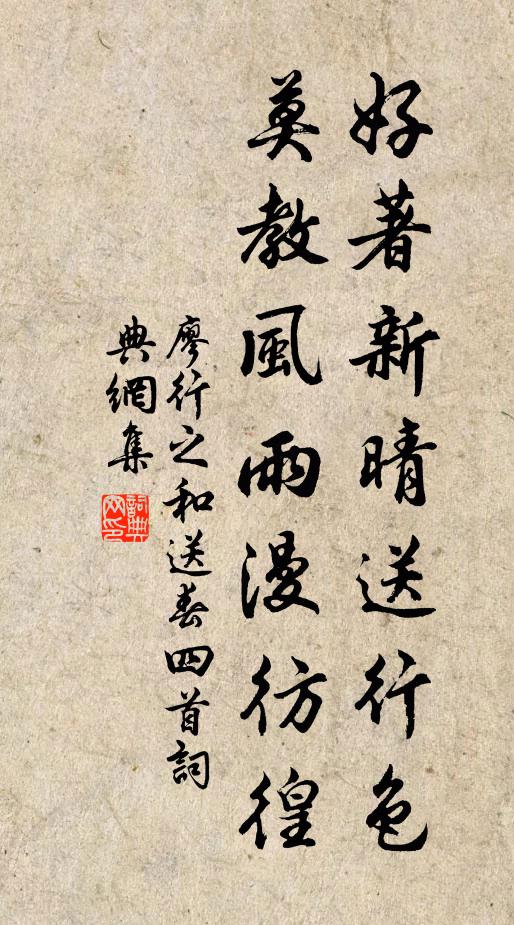 好著新晴送行色
莫教風雨漫彷徨
廖行之和送春四首詞
典網集
詞典網印